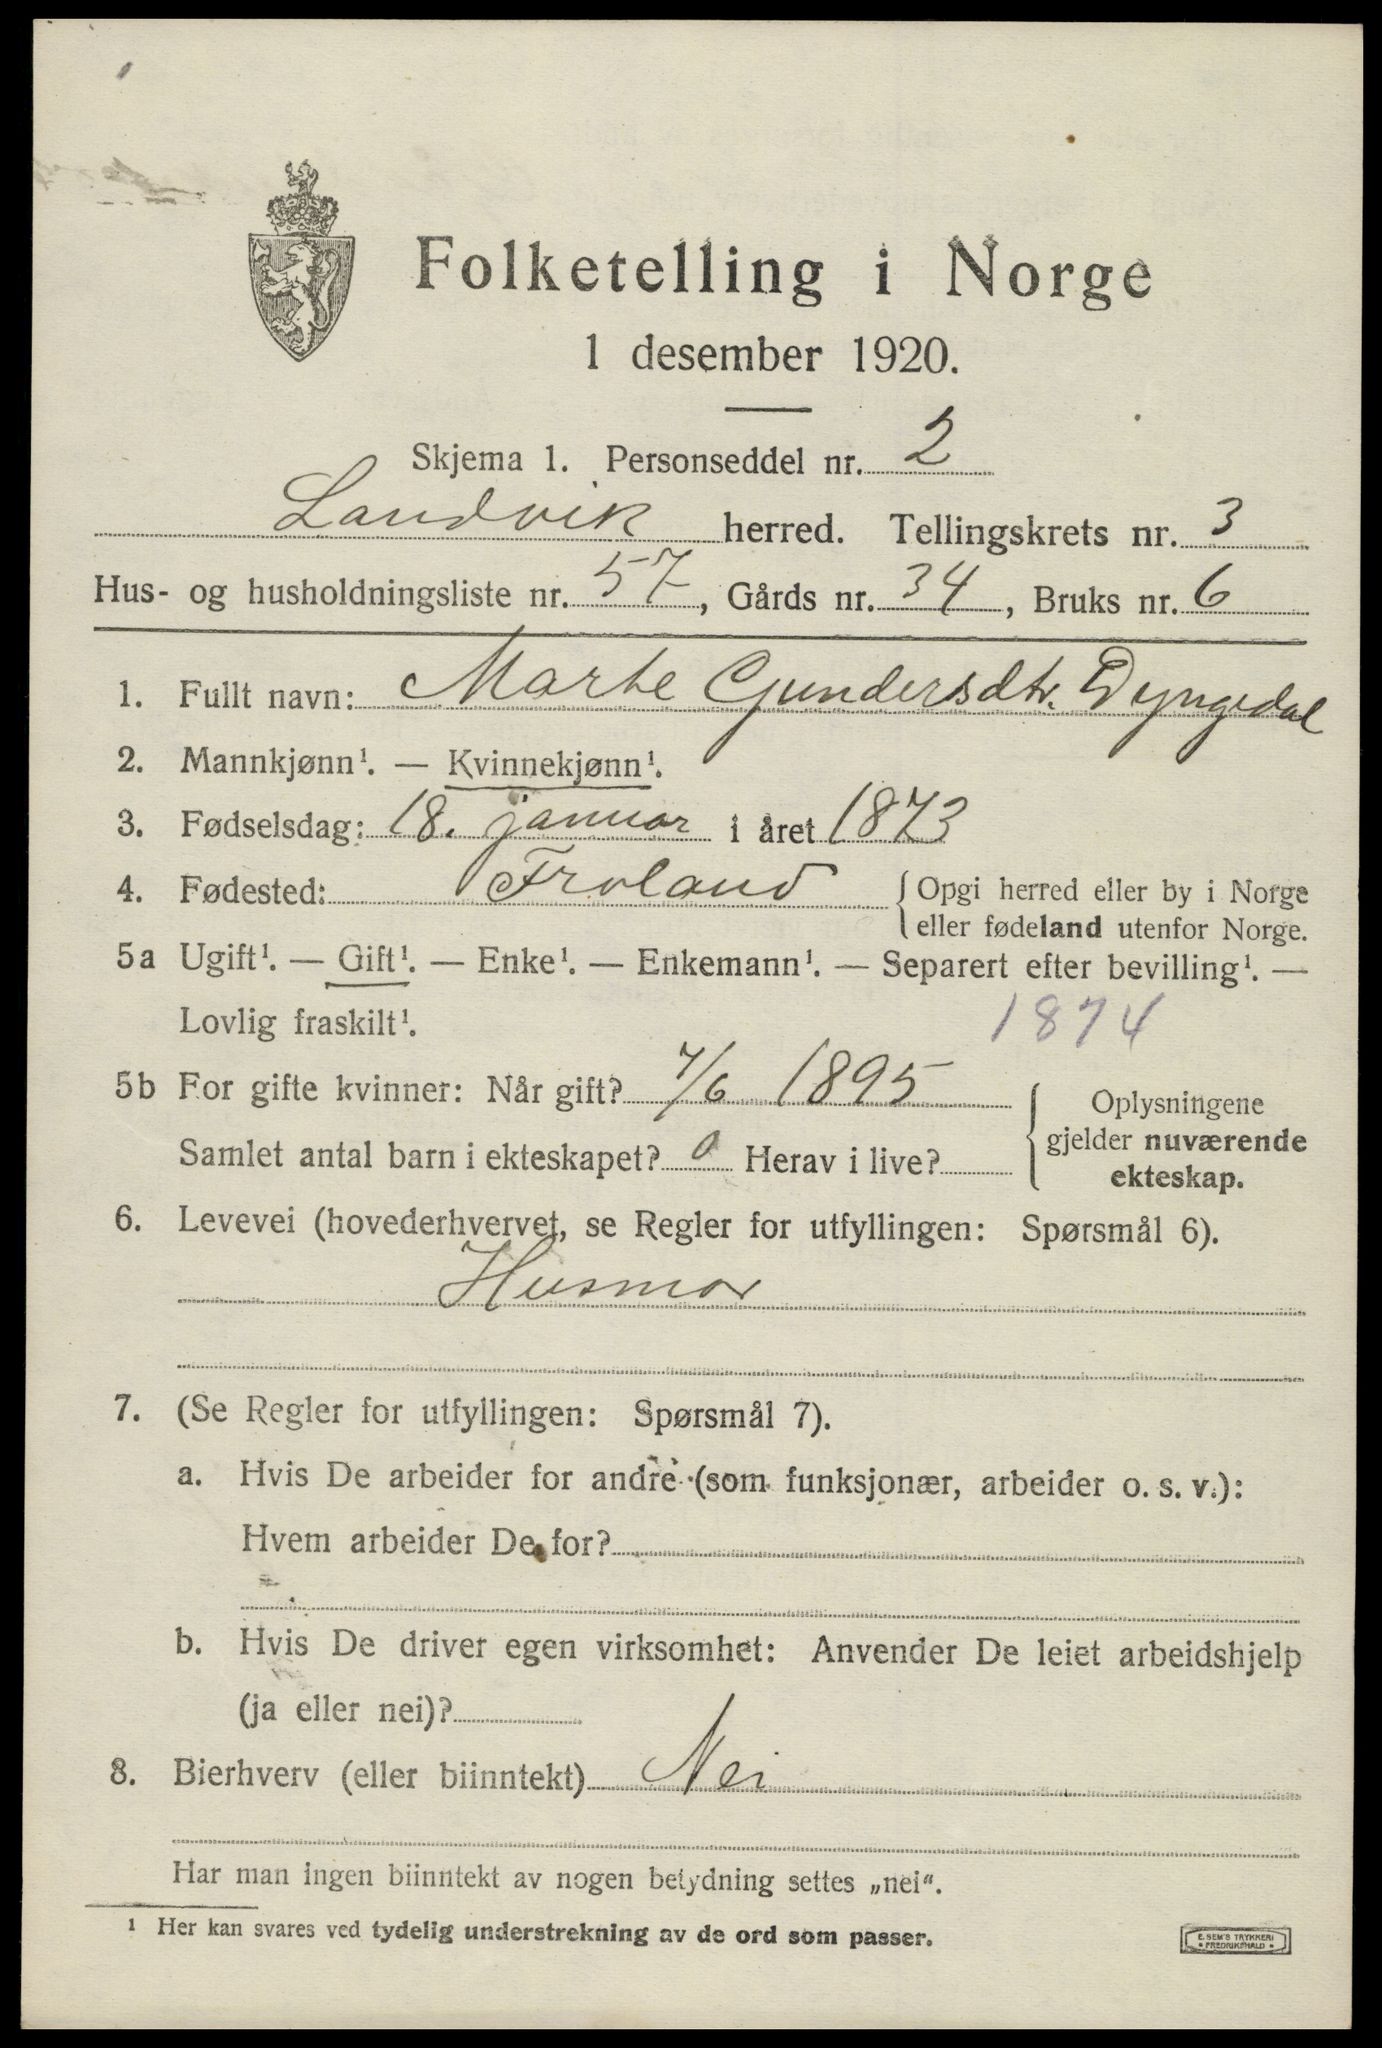 Folketelling i Norge
1 desember 1920.
Skjema 1. Personseddel nr. 2
Landvik herred. Tellingskrets nr. 3
Hus- og husholdningsliste nr. 57, Gårds nr. 34, Bruks nr. 6
1. Fullt navn: Marte Gundersdtr. Dyngedal
2. Mannkjønn¹. — Kvinnekjønn¹.
3. Fødselsdag: 18. januar i året 1873
4. Fødested: Froland { Opgi herred eller by i Norge
eller fødeland utenfor Norge.
5a Ugift¹. — Gift¹. — Enke¹. — Enkemann¹. — Separert efter bevilling¹. —
Lovlig fraskilt¹. 1874
5b For gifte kvinner: Når gift? 7/6 1895
Samlet antal barn i ekteskapet? 0 Herav i live?
Oplysningene
gjelder nuværende
ekteskap.
6. Levevei (hovederhvervet, se Regler for utfyllingen: Spørsmål 6).
Husmor
7. (Se Regler for utfyllingen: Spørsmål 7).
a. Hvis De arbeider for andre (som funksjonær, arbeider o. s. v.):
Hvem arbeider De for?
b. Hvis De driver egen virksomhet: Anvender De leiet arbeidshjelp
(ja eller nei)?
8. Bierhverv (eller biinntekt) Nei
Har man ingen biinntekt av nogen betydning settes „nei“.
¹ Her kan svares ved tydelig understrekning av de ord som passer.
E. SEM'S TRYKKERI
• FREDRIKSHALD •